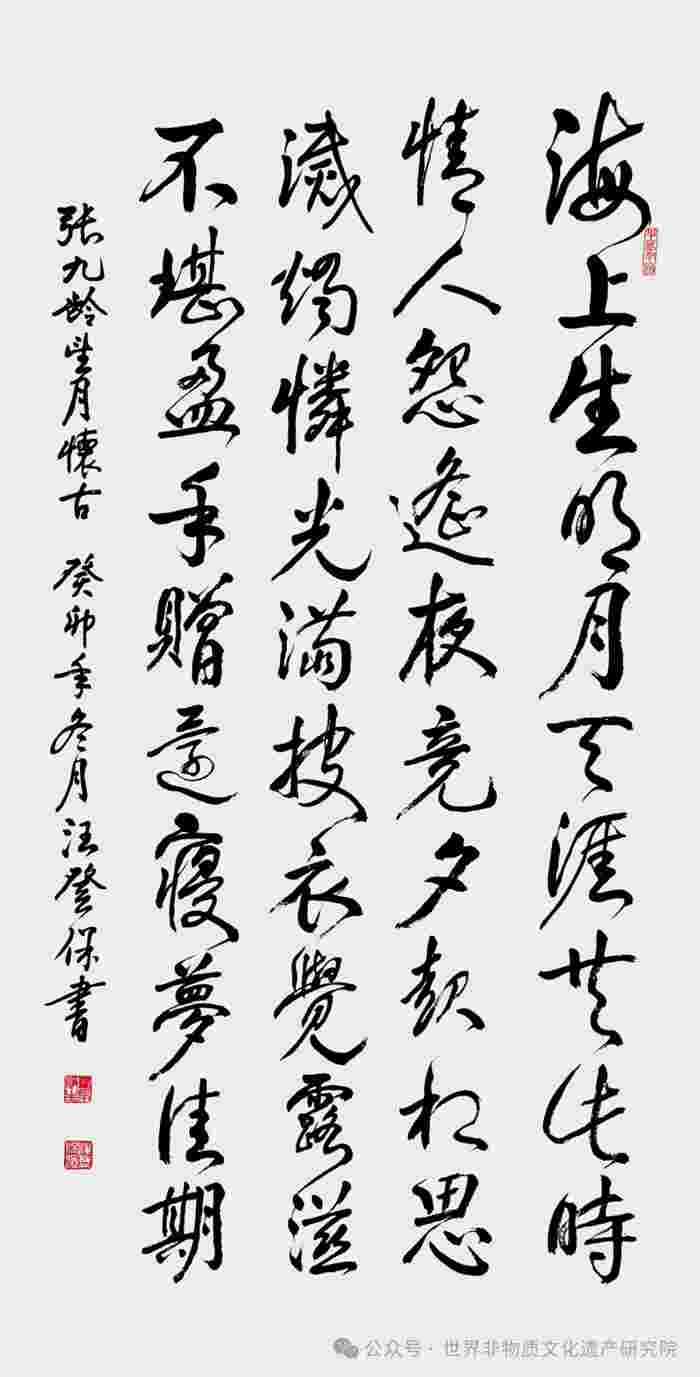 海上生明月天涯共此時
情人怨遙夜竟夕起相思
滅燭憐光滿披衣覺露滋
不堪盈手贈還寢夢佳期
張九齡望月懷古 癸卯年冬月汪登保書
公众号 · 世界非物质文化遗产研究院